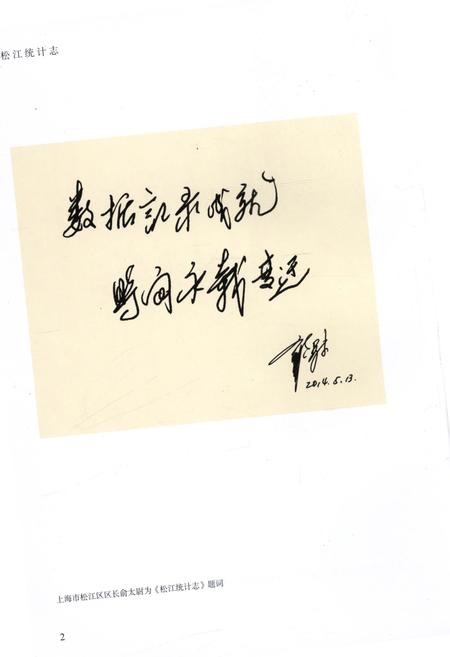 松江统计志
数据记录成就
时间承载变迁
2014.5.13.
上海市松江区区长俞太尉为《松江统计志》题词
2